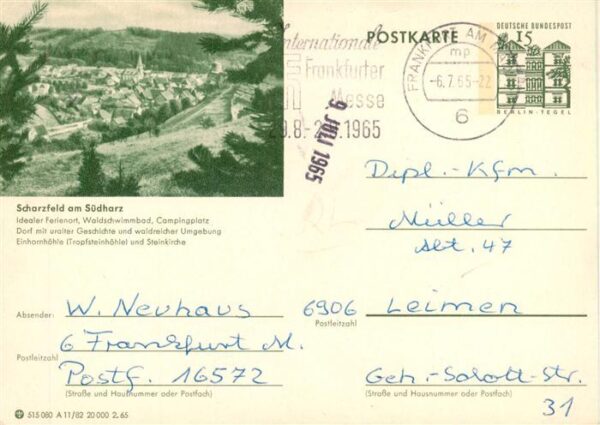 Internationale
Frankfurter
Messe
29.8.-2.9.1965
POSTKARTE
FRANKFURT AM MAIN
mp
-6.7.65-22
6
DEUTSCHE BUNDESPOST
15
BERLIN-TEGEL
9. JULI 1965
Scharzfeld am Südharz
Idealer Ferienort, Waldschwimmbad, Campingplatz
Dorf mit uralter Geschichte und waldreicher Umgebung
Einhornhöhle (Tropfsteinhöhle) und Steinkirche
Dipl.-Kfm.
Müller
Abt. 47
6906 Leimen
Postleitzahl
Geh.-Schott-Str.
31
(Straße und Hausnummer oder Postfach)
Absender: W. Neuhaus
6 Frankfurt M.
Postleitzahl
Postf. 16572
(Straße und Hausnummer oder Postfach)
515 080 A 11/82 20 000 2. 65